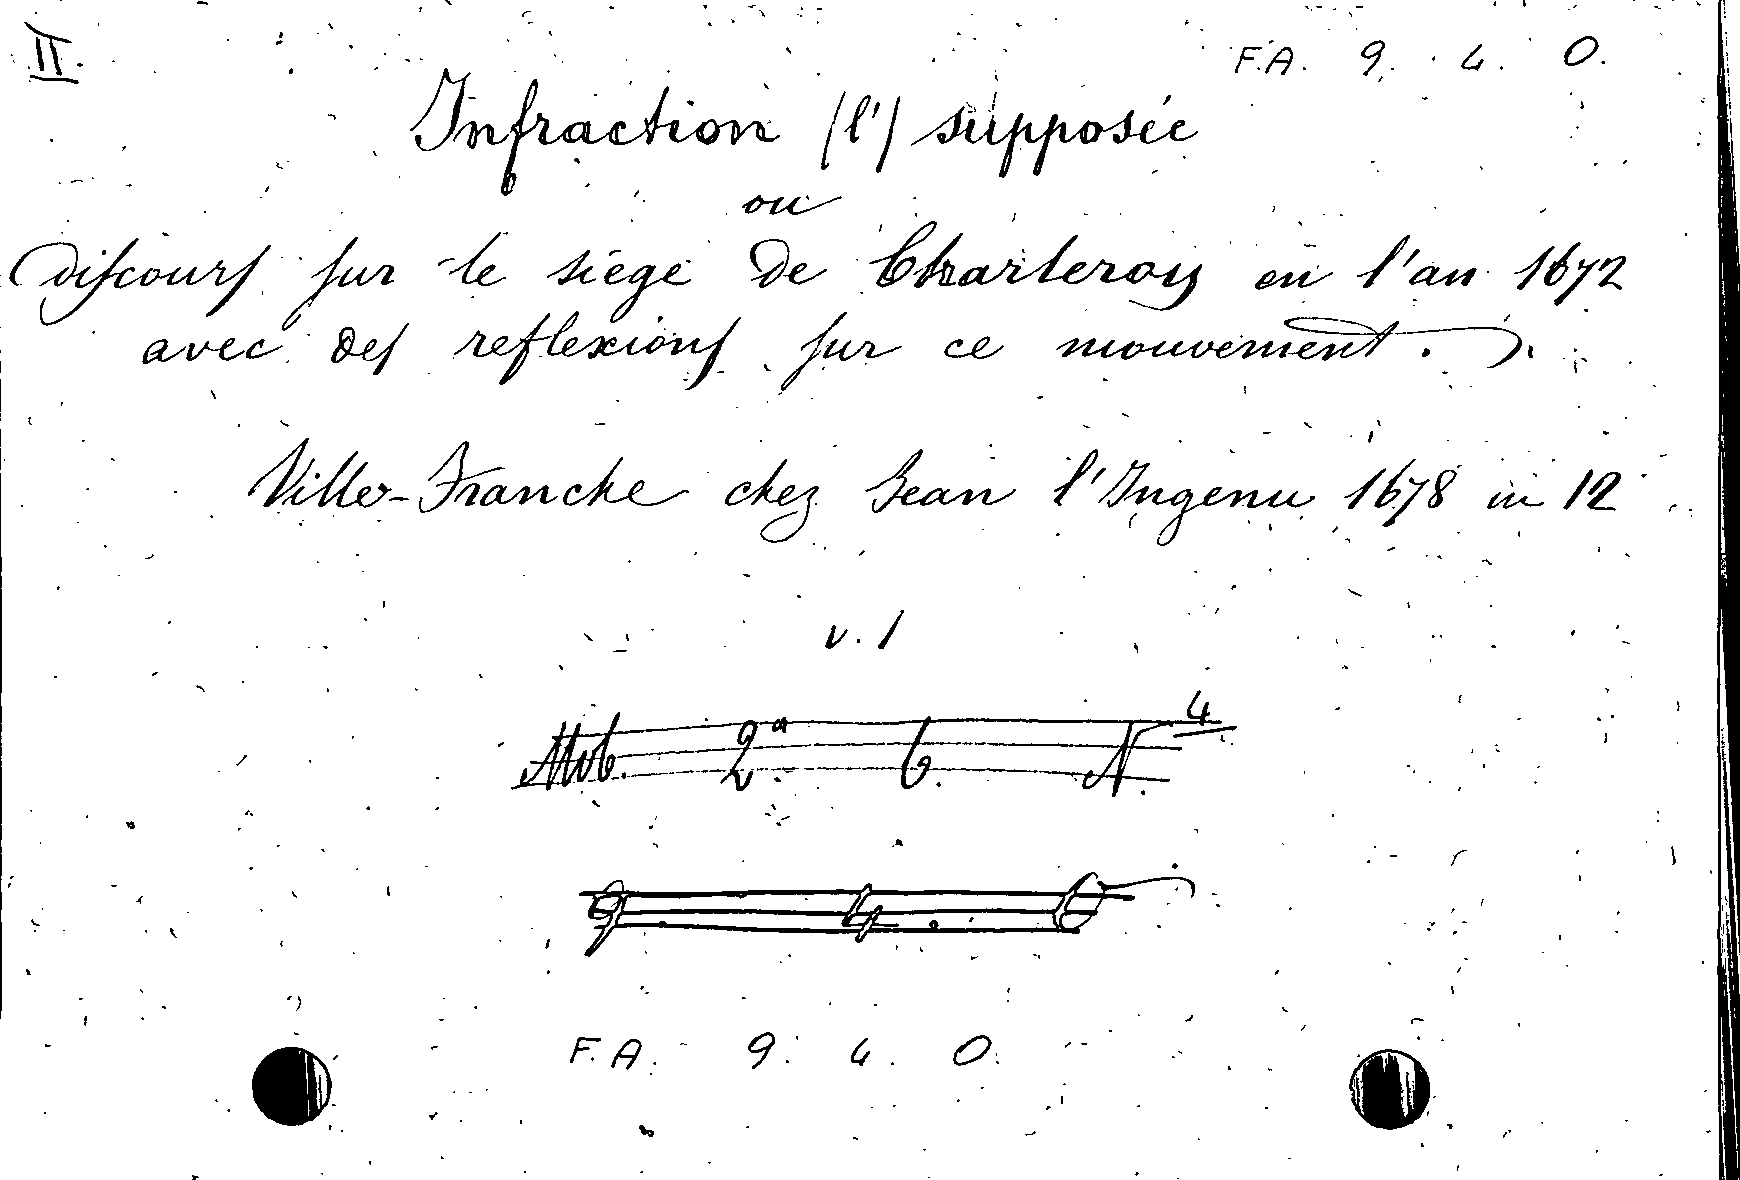 II.
F.A. 9. 4. O.
Infraction (l') supposée
ou
Discours sur le siège de Charleroy en l'an 1672
avec des reflexions sur ce mouvement.
Ville-Franche chez Jean l'Ingenu 1678 in 12
v. 1
Mob. 2ª. 6. N. 4
9 4. O
F. A. 9. 4. O.